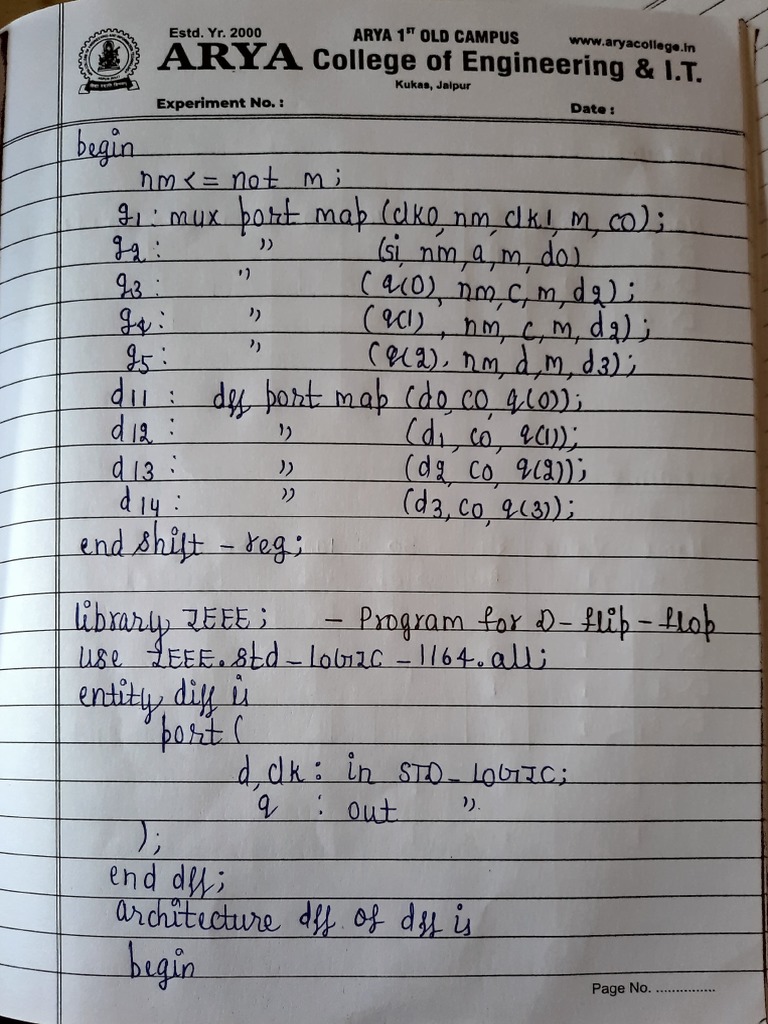 Estd. Yr. 2000
ARYA 1ST OLD CAMPUS
www.aryacollege.in
ARYA College of Engineering & I.T.
Kukas, Jaipur
Experiment No. :
Date :
begin
nm <= not m;
g1 : mux port map (clk0, nm, clk1, m, co);
g2 : " (si, nm, a, m, do)
g3 : " (q(0), nm, c, m, d2);
g4 : " (q(1), nm, c, m, d2);
g5 : " (q(2), nm, d, m, d3);
d11 : dff port map (do, co, q(0));
d12 : " (d1, co, q(1));
d13 : " (d2, co, q(2));
d14 : " (d3, co, q(3));
end shift - reg;
library IEEE; - Program for D - flip - flop
use IEEE.std - LOGIC - 1164.all;
entity dff is
port (
d, clk : in STD - LOGIC;
q : out "
);
end dff;
architecture dff of dff is
begin
Page No. ...............